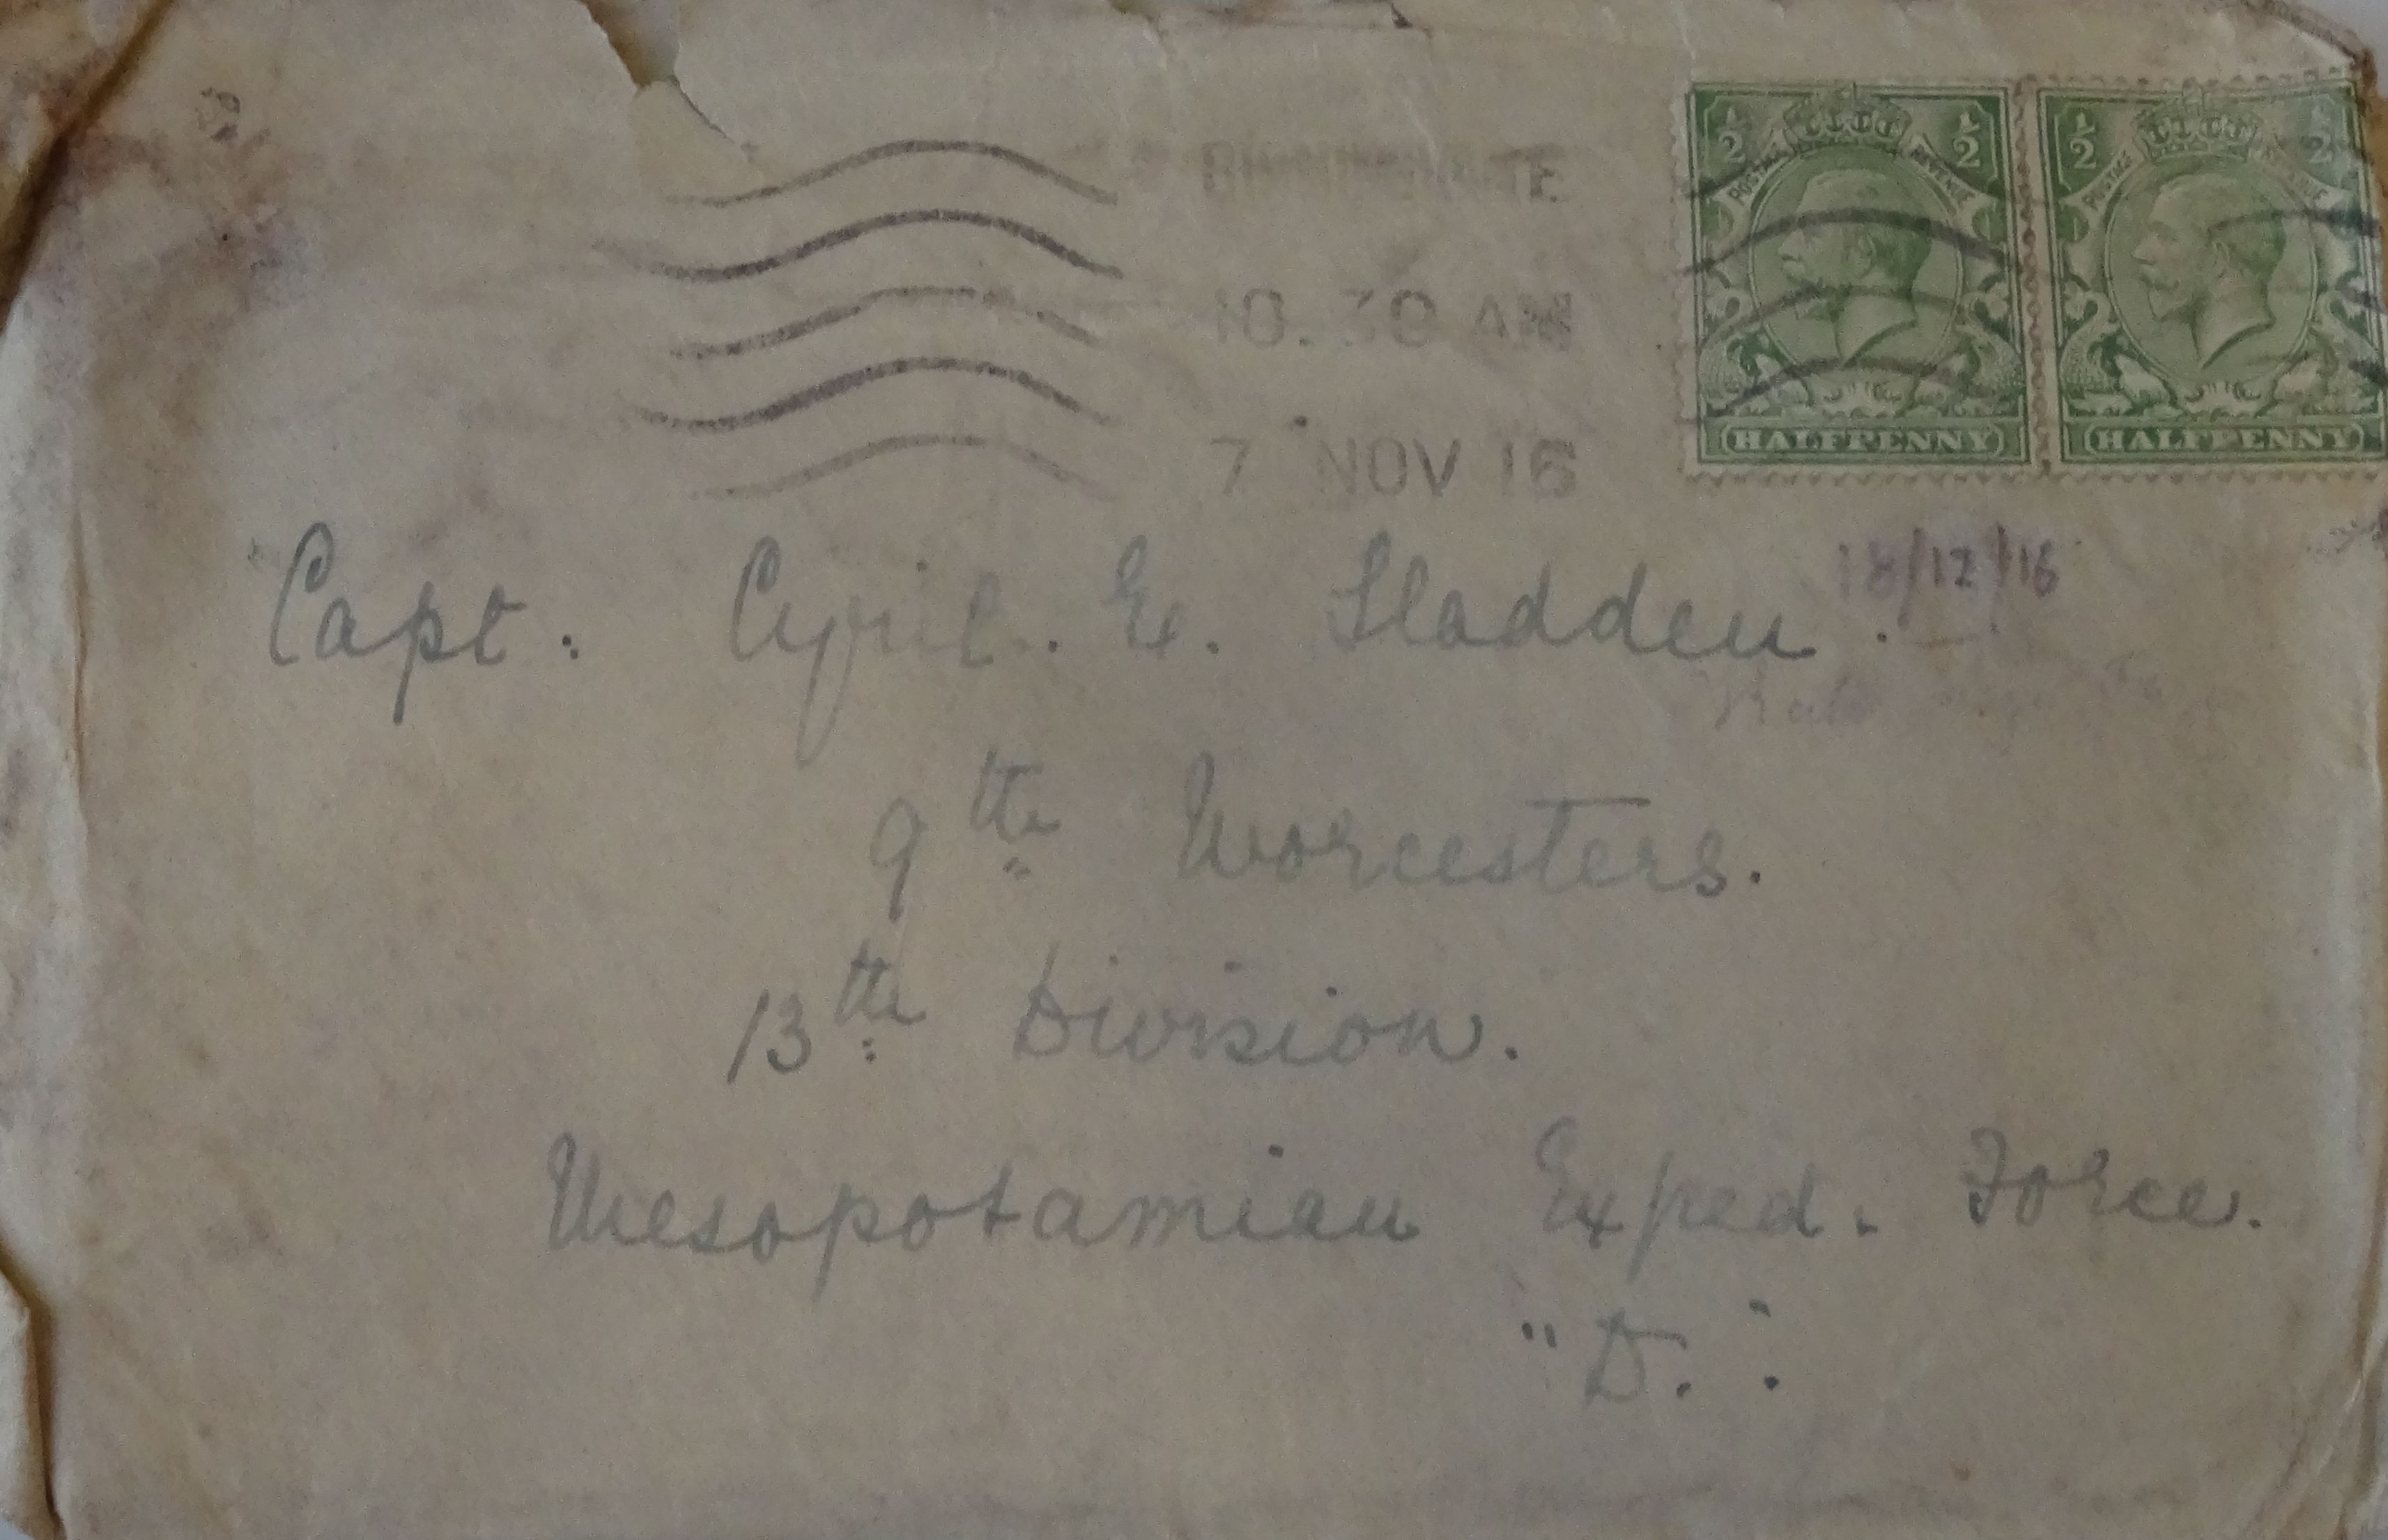 ½ POSTAGE REVENUE ½ ½ POSTAGE REVENUE ½
10.30 AM
7 NOV 16
HALFPENNY HALFPENNY
18/12/16
Capt. Cyril. E. Sladden.
9th Worcesters.
13th Division.
Mesopotamian Exped. Force.
"D."